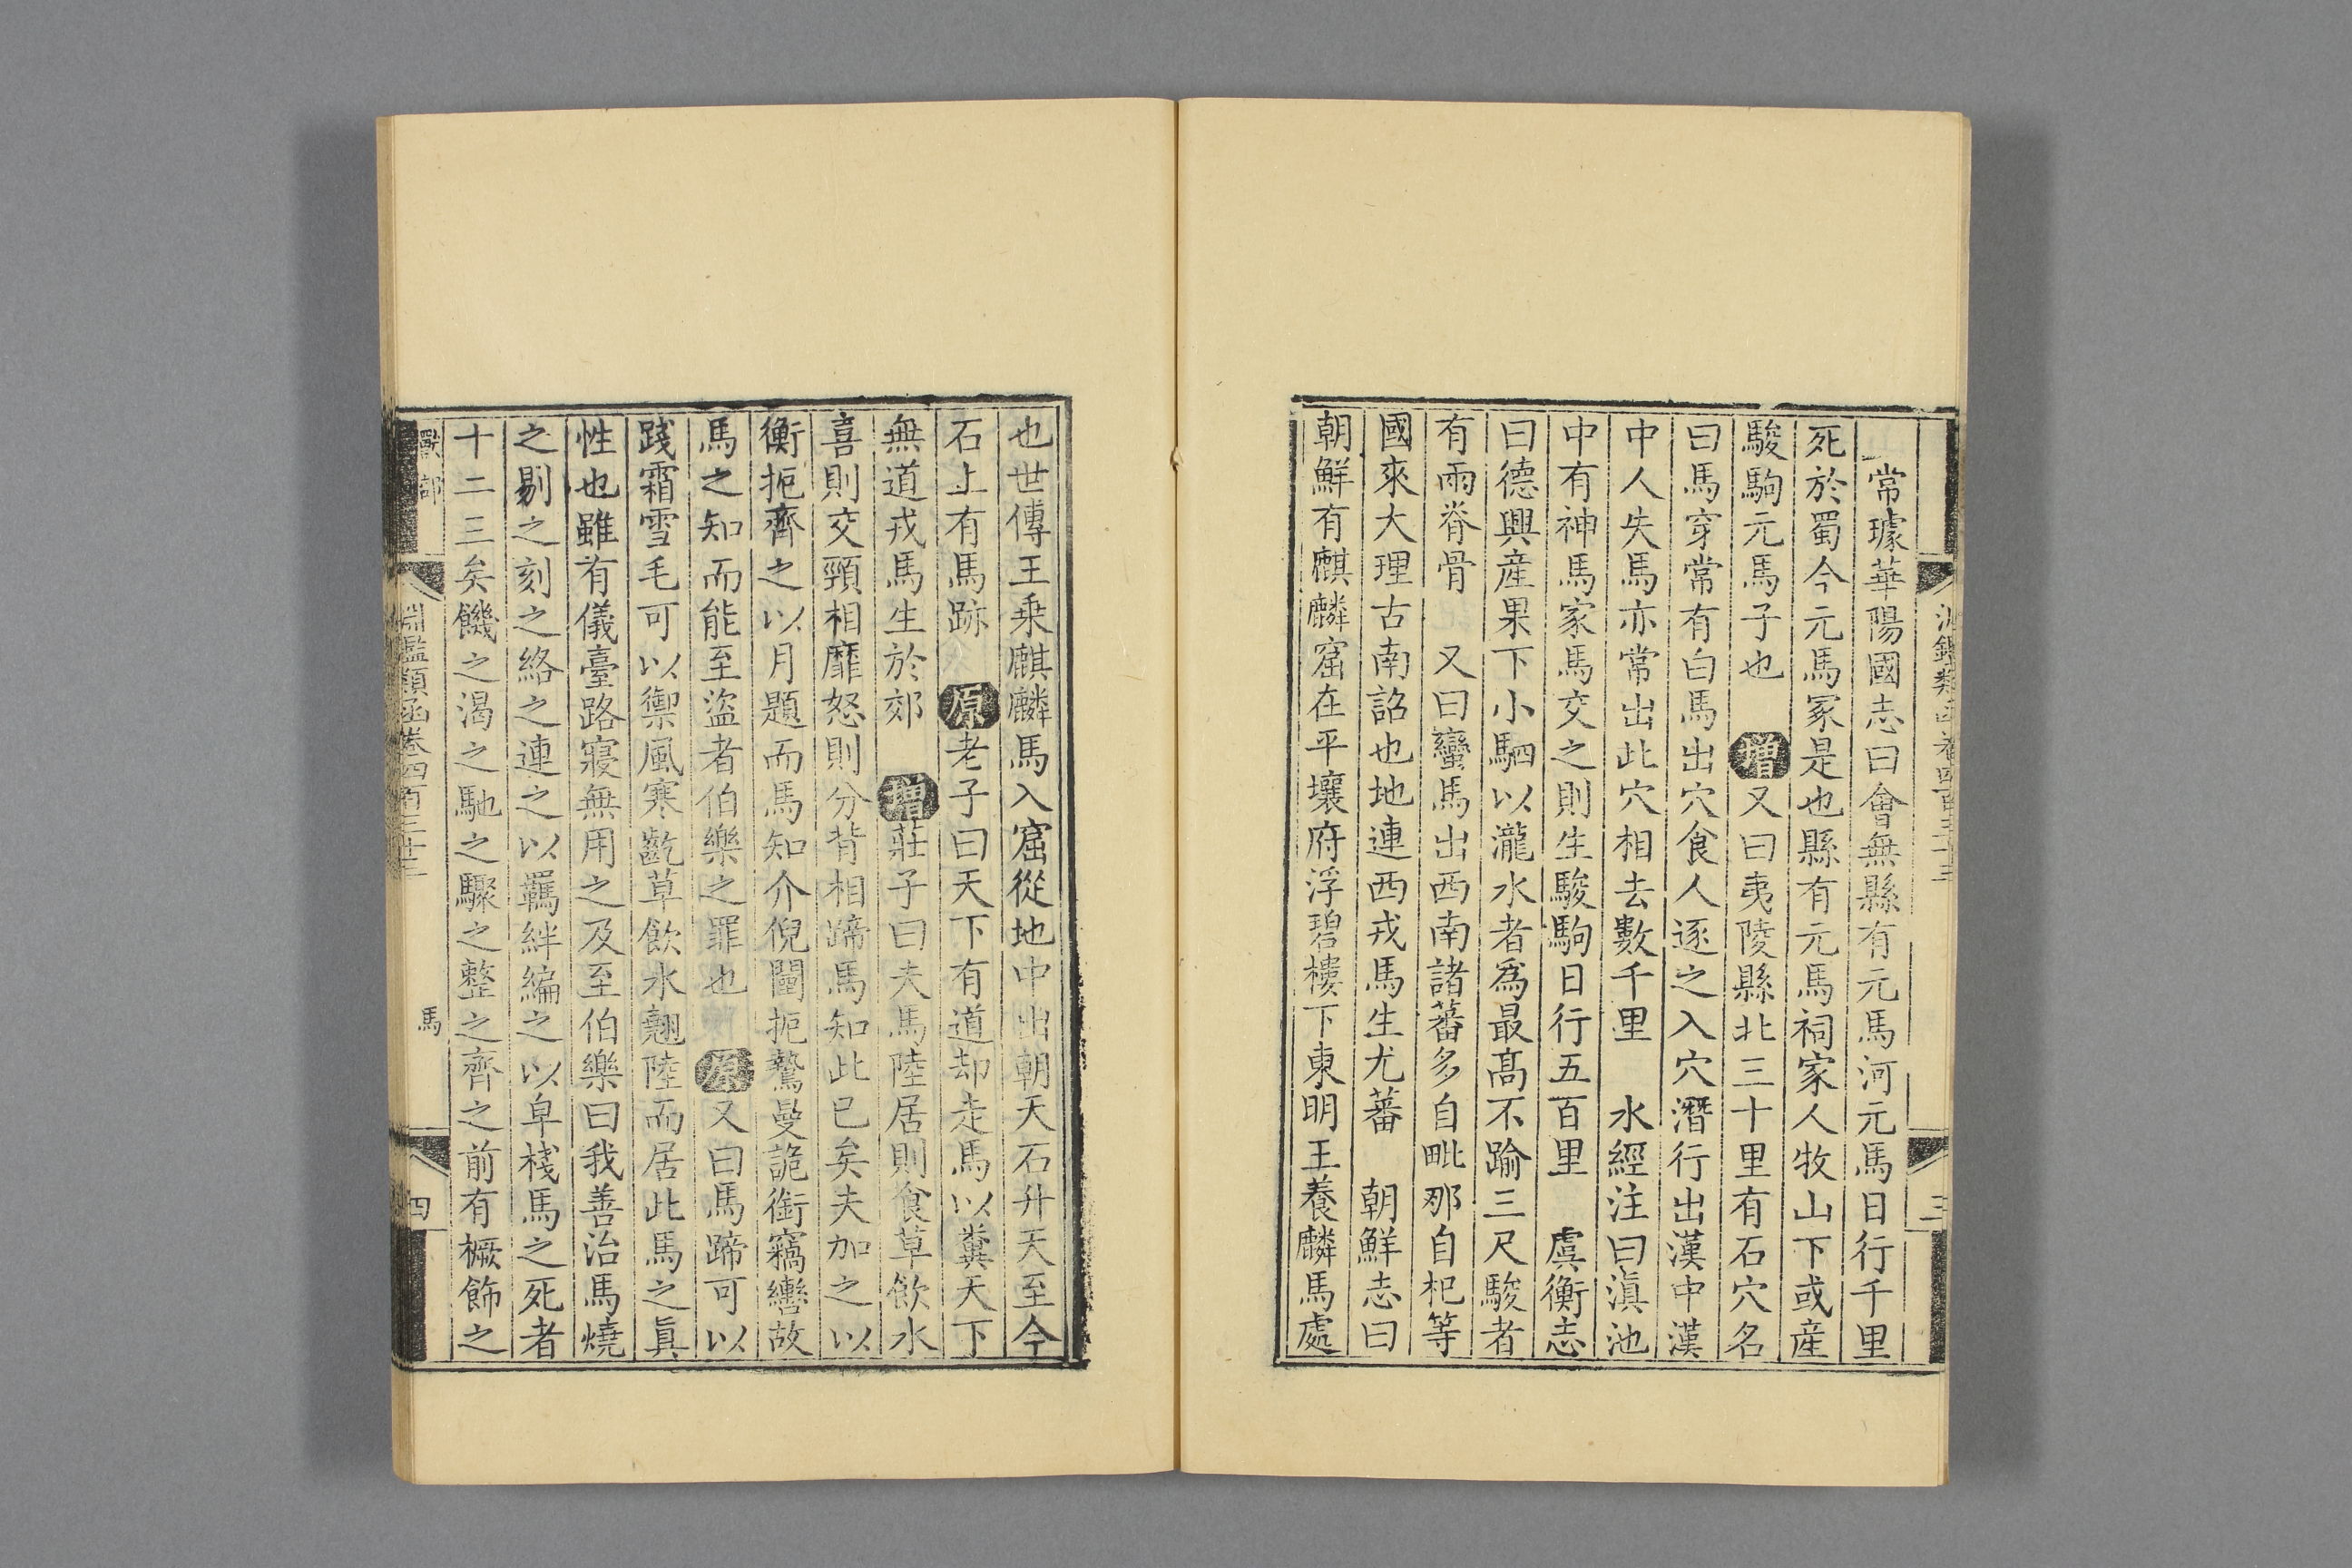 常璩華陽國志曰會無縣有元馬河元馬日行千里
死於蜀今元馬冢是也縣有元馬祠家人牧山下或産
駿駒元馬子也 增又曰夷陵縣北三十里有石穴名
曰馬穿常有白馬出穴食人逐之入穴潛行出漢中漢
中人失馬亦常出此穴相去數千里 水經注曰滇池
中有神馬家馬交之則生駿駒日行五百里 虞衡志
曰德興産果下小駟以瀧水者爲最高不踰三尺駿者
有兩脊骨 又曰蠻馬出西南諸蕃多自毗那自杞等
國來大理古南詔也地連西戎馬生尤蕃 朝鮮志曰
朝鮮有麒麟窟在平壤府浮碧樓下東明王養麟馬處
三
也世傳王乗麒麟馬入窟從地中出朝天石升天至今
石上有馬跡 原老子曰天下有道却走馬以糞天下
無道戎馬生於郊 增莊子曰夫馬陸居則食草飲水
喜則交頸相靡怒則分背相蹄馬知此已矣夫加之以
衡扼齊之以月題而馬知介倪闉扼鷙曼詭銜竊轡故
馬之知而能至盜者伯樂之罪也 原又曰馬蹄可以
踐霜雪毛可以禦風寒齕草飲水翹陸而居此馬之眞
性也雖有儀臺路寢無用之及至伯樂曰我善治馬燒
之剔之刻之絡之連之以羈絆編之以皁棧馬之死者
十二三矣饑之渴之馳之驟之整之齊之前有橛飾之
獸部 淵鑑類函卷四百三十三 馬 四